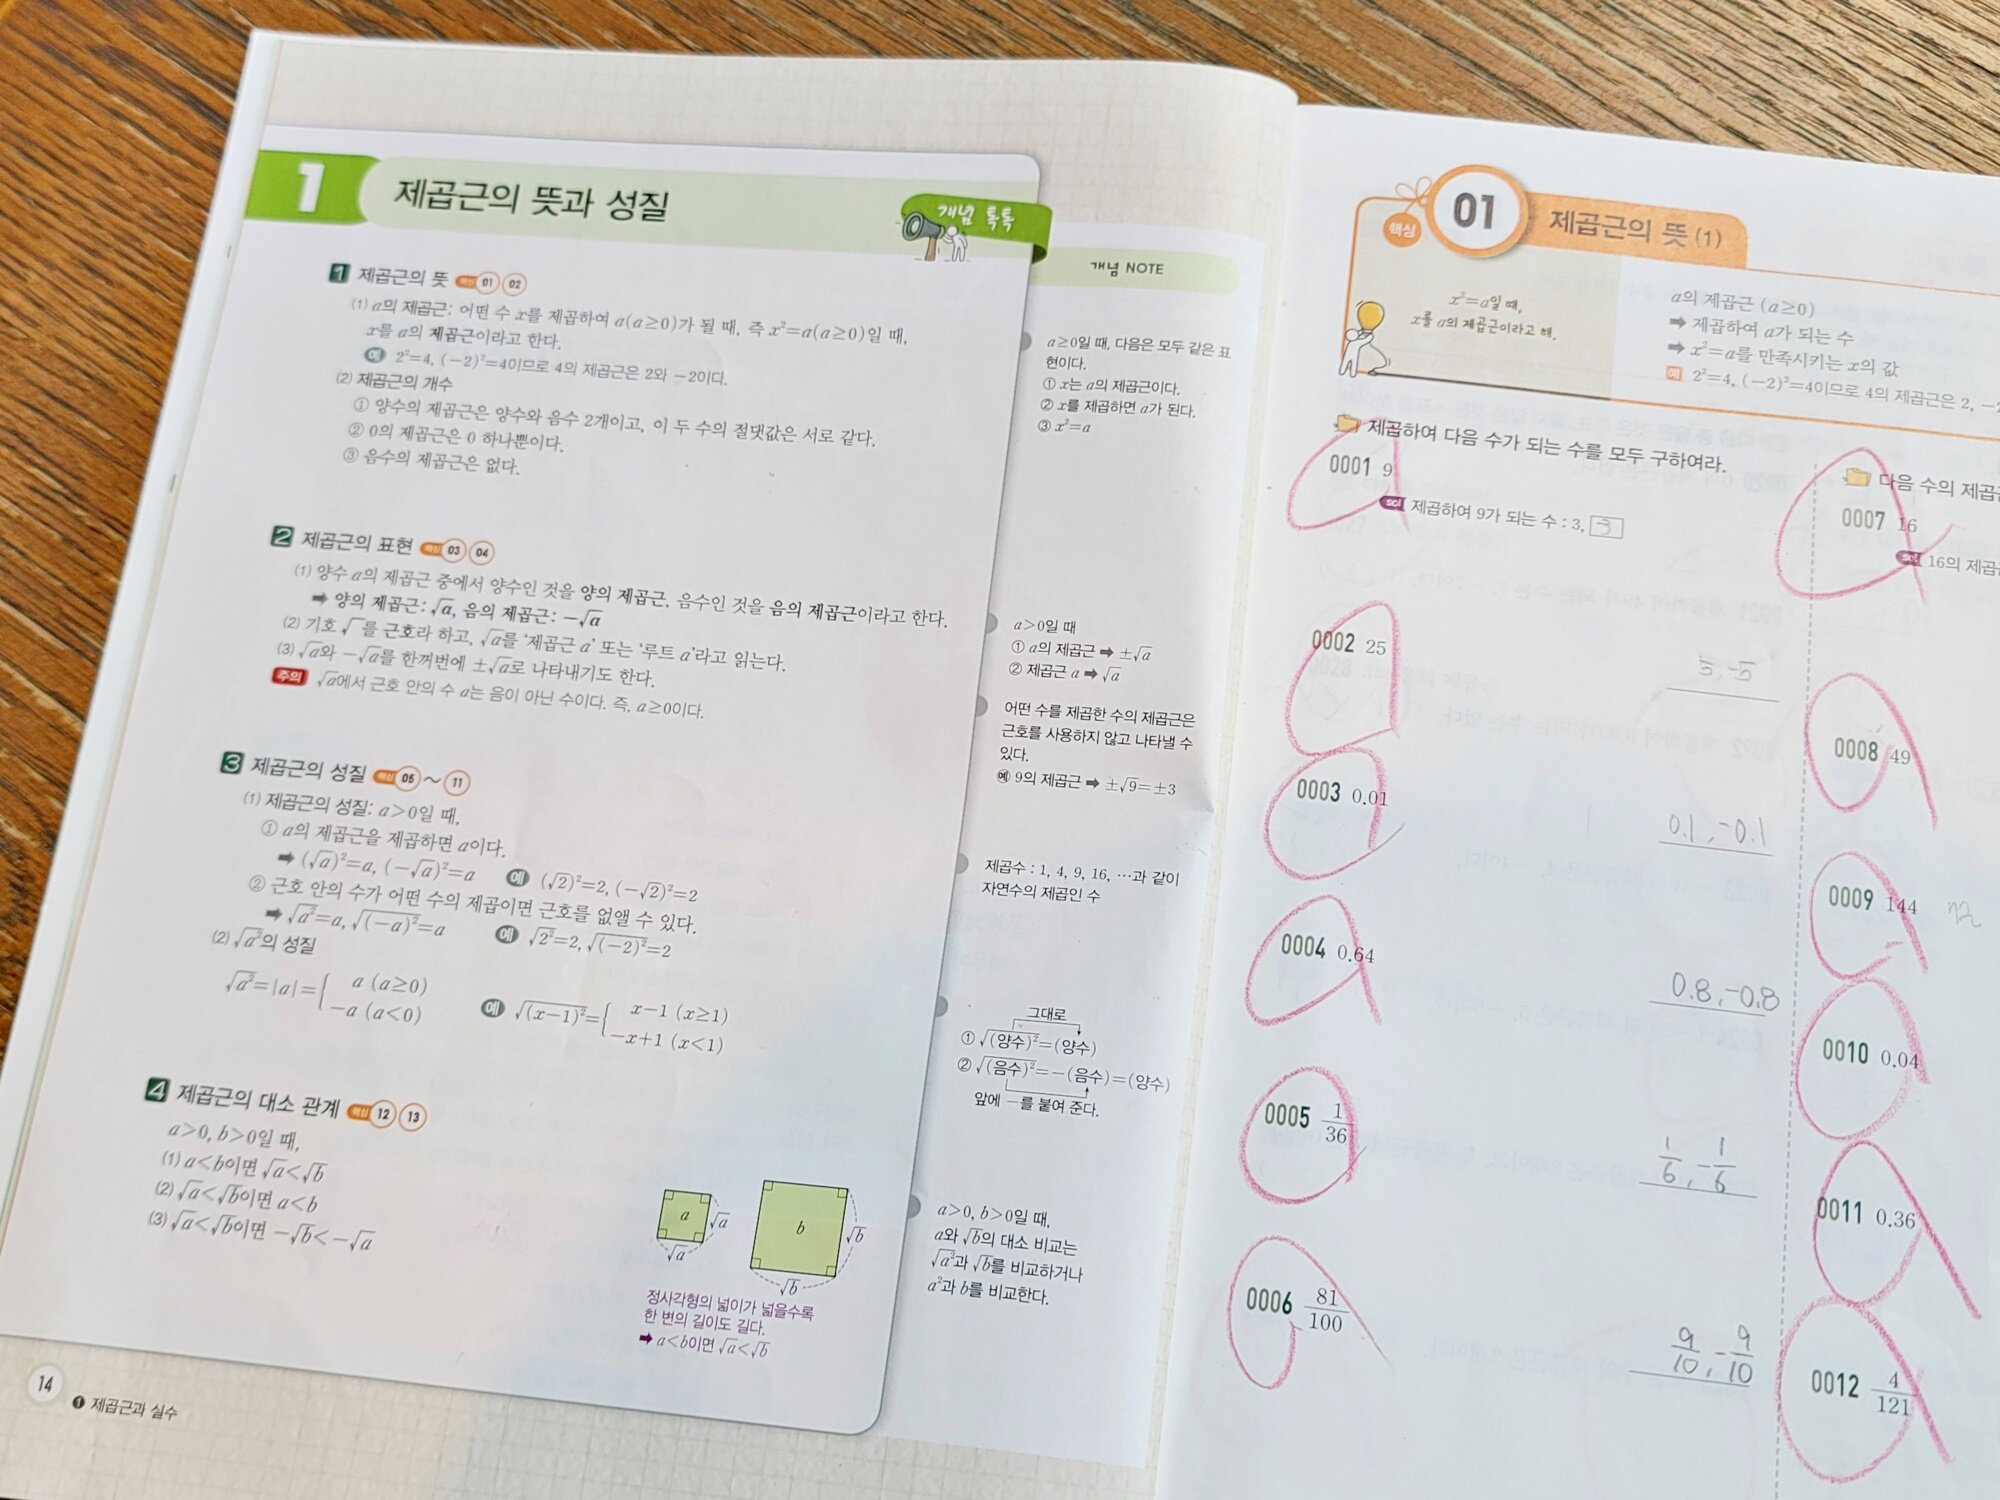 1 제곱근의 뜻과 성질
개념 톡톡
1 제곱근의 뜻 핵심 01 02
(1) a의 제곱근: 어떤 수 x를 제곱하여 a(a≥0)가 될 때, 즉 x²=a(a≥0)일 때,
x를 a의 제곱근이라고 한다.
예 2²=4, (-2)²=4이므로 4의 제곱근은 2와 -2이다.
(2) 제곱근의 개수
① 양수의 제곱근은 양수와 음수 2개이고, 이 두 수의 절댓값은 서로 같다.
② 0의 제곱근은 0 하나뿐이다.
③ 음수의 제곱근은 없다.
2 제곱근의 표현 핵심 03 04
(1) 양수 a의 제곱근 중에서 양수인 것을 양의 제곱근, 음수인 것을 음의 제곱근이라고 한다.
➡ 양의 제곱근: √a, 음의 제곱근: -√a
(2) 기호 √ 를 근호라 하고, √a를 ‘제곱근 a’ 또는 ‘루트 a’라고 읽는다.
(3) √a와 -√a를 한꺼번에 ±√a로 나타내기도 한다.
주의 √a에서 근호 안의 수 a는 음이 아닌 수이다. 즉, a≥0이다.
3 제곱근의 성질 핵심 05 ~ 11
(1) 제곱근의 성질: a>0일 때,
① a의 제곱근을 제곱하면 a이다.
➡ (√a)²=a, (-√a)²=a 예 (√2)²=2, (-√2)²=2
② 근호 안의 수가 어떤 수의 제곱이면 근호를 없앨 수 있다.
➡ √a²=a, √(-a)²=a 예 √2²=2, √(-2)²=2
(2) √a²의 성질
√a²=|a|={ a (a≥0)
-a (a<0)
예 √(x-1)²={ x-1 (x≥1)
-x+1 (x<1)
4 제곱근의 대소 관계 핵심 12 13
a>0, b>0일 때,
(1) a<b이면 √a<√b
(2) √a<√b이면 a<b
(3) √a<√b이면 -√b<-√a
a √a √a
b √b √b
정사각형의 넓이가 넓을수록
한 변의 길이도 길다.
➡ a<b이면 √a<√b
14 ❶ 제곱근과 실수
개념 NOTE
a≥0일 때, 다음은 모두 같은 표
현이다.
① x는 a의 제곱근이다.
② x를 제곱하면 a가 된다.
③ x²=a
a>0일 때
① a의 제곱근 ➡ ±√a
② 제곱근 a ➡ √a
어떤 수를 제곱한 수의 제곱근은
근호를 사용하지 않고 나타낼 수
있다.
예 9의 제곱근 ➡ ±√9=±3
제곱수 : 1, 4, 9, 16, …과 같이
자연수의 제곱인 수
그대로
① √(양수)²=(양수)
② √(음수)²=-(음수)=(양수)
앞에 -를 붙여 준다.
a>0, b>0일 때,
a와 √b의 대소 비교는
√a²과 √b를 비교하거나
a²과 b를 비교한다.
핵심 01 제곱근의 뜻 (1)
x²=a일 때,
x를 a의 제곱근이라고 해.
a의 제곱근 (a≥0)
➡ 제곱하여 a가 되는 수
➡ x²=a를 만족시키는 x의 값
예 2²=4, (-2)²=4이므로 4의 제곱근은 2, -2
제곱하여 다음 수가 되는 수를 모두 구하여라.
0001 9
sol 제곱하여 9가 되는 수 : 3, -3
0002 25
5, -5
0003 0.01
0.1, -0.1
0004 0.64
0.8, -0.8
0005 1/36
1/6, -1/6
0006 81/100
9/10, -9/10
다음 수의 제곱근
0007 16
sol 16의 제곱근
0008 49
0009 144
0010 0.04
0011 0.36
0012 4/121